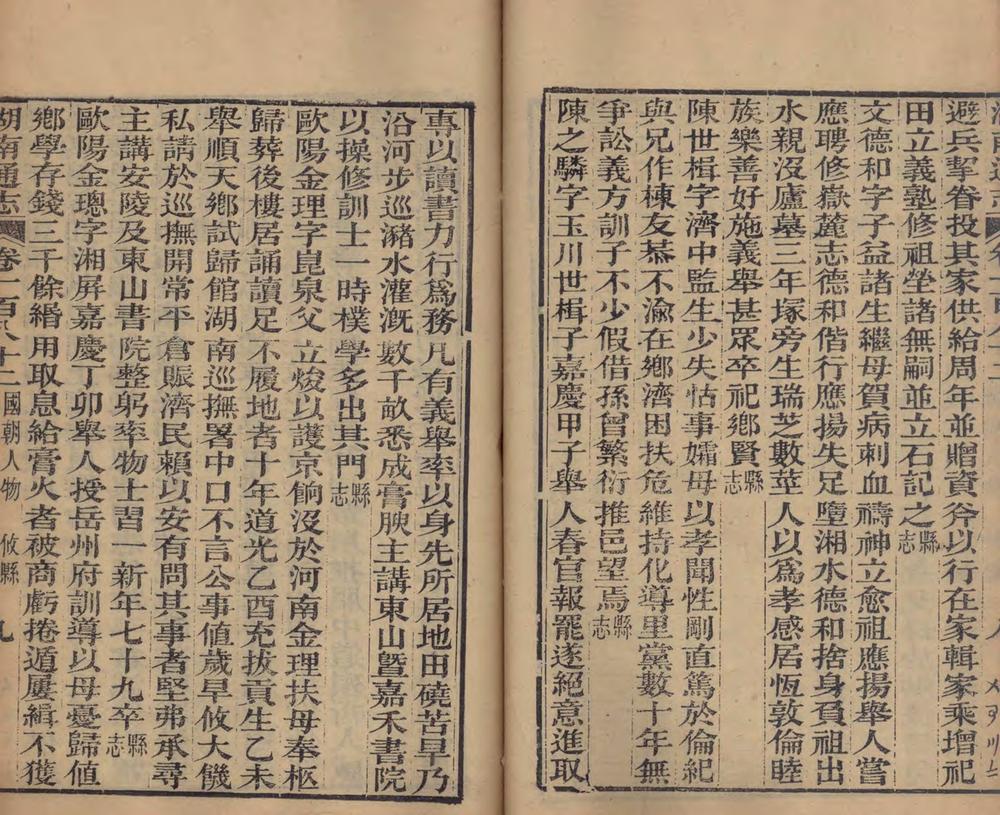 避兵挈眷投其家供給周年並贈資斧以行在家輯家乘增祀
田立義塾修祖坐諸無嗣並立石記之縣志
文德和字子益諸生繼母賀病刺血禱神立愈祖應揚舉人嘗
應聘修嶽麓志德和偕行應揚失足墮湘水德和捨身負祖出
水親沒廬墓三年塚旁生瑞芝數莖人以為孝感居恆敦倫睦
族樂善好施義舉甚眾卒祀鄉賢縣志
陳世楫字濟中監生少失怙事孀母以孝聞性剛直篤於倫紀
與兄作棟友恭不渝在鄉濟困扶危維持化導里黨數十年無
爭訟義方訓子不少假借孫曾繁衍推邑望焉縣志
陳之驎字玉川世楫子嘉慶甲子舉人春官報罷遂絕意進取
專以讀書力行為務凡有義舉率以身先所居地田磽苦旱乃
沿河步巡瀦水灌溉數千畝悉成膏腴主講東山暨嘉禾書院
以操修訓士一時樸學多出其門縣志
歐陽金理字崑泉父立焌以護京餉沒於河南金理扶母奉柩
歸葬後樓居誦讀足不履地者十年道光乙酉充拔貢生乙未
舉順天鄉試歸館湖南巡撫署中口不言公事值歲旱攸大饑
私請於巡撫開常平倉賑濟民賴以安有問其事者堅弗承尋
主講安陵及東山書院整躬率物士習一新年七十九卒縣志
歐陽金璁字湘屏嘉慶丁卯舉人授岳州府訓導以母憂歸值
鄉學存錢三千餘緡用取息給膏火者被商虧捲遁屢緝不獲
湖南通志 卷一百八十二 國朝人物 攸縣 九